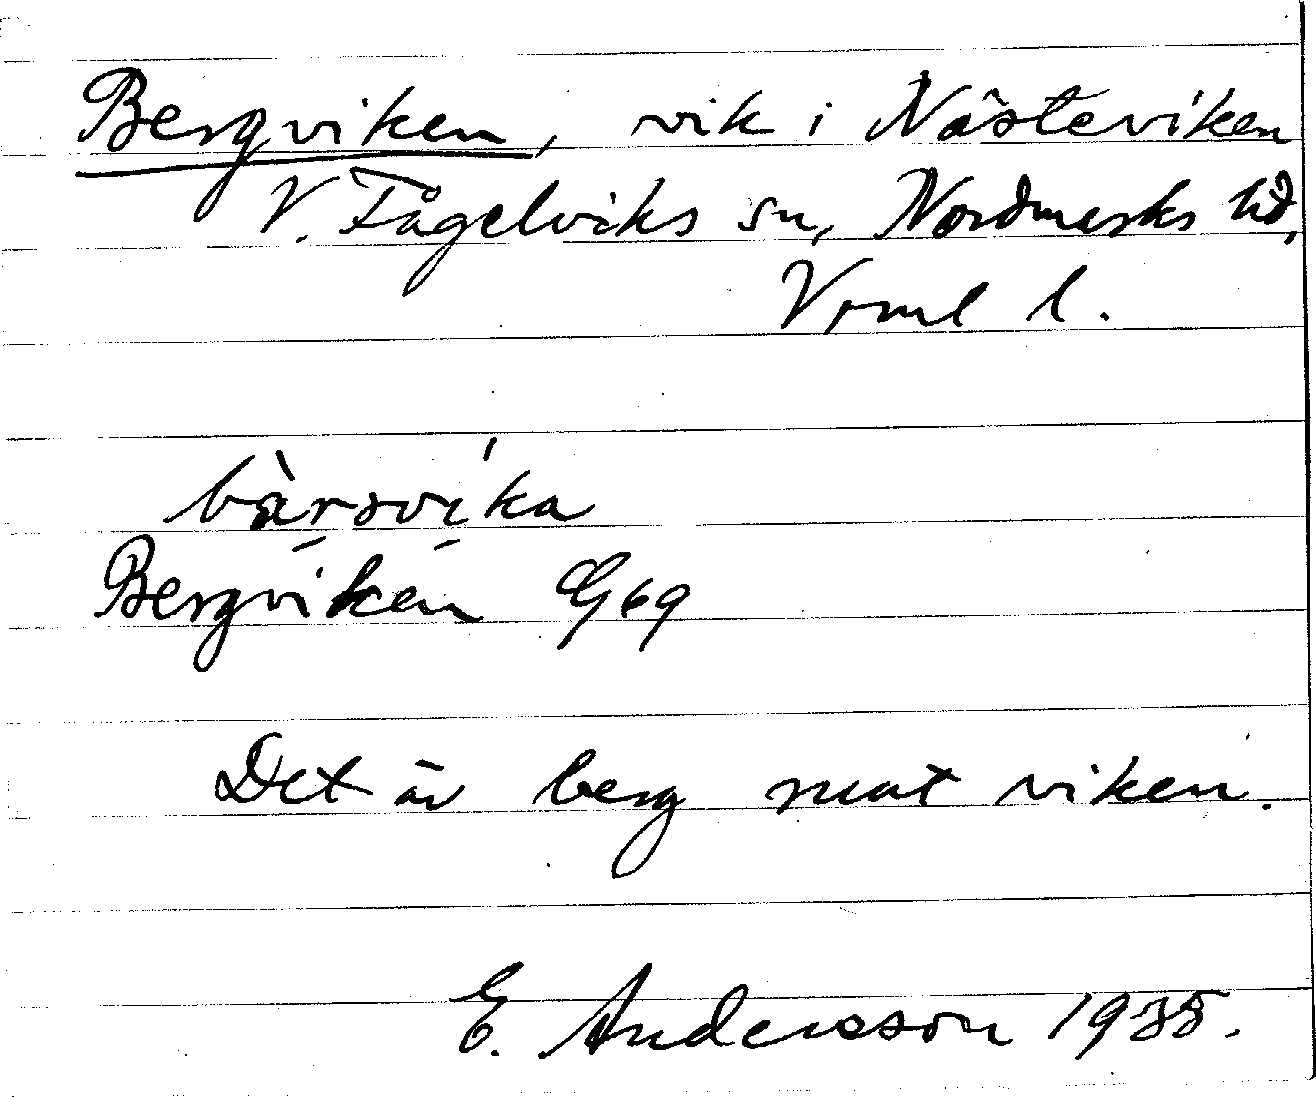 Bergviken, vik i Nästeviken
V. Fågelviks sn, Nordmarks hd,
Vrml l.
bàrsvika
Bergviken G69
Det är berg mot viken.
E. Andersson 1935.